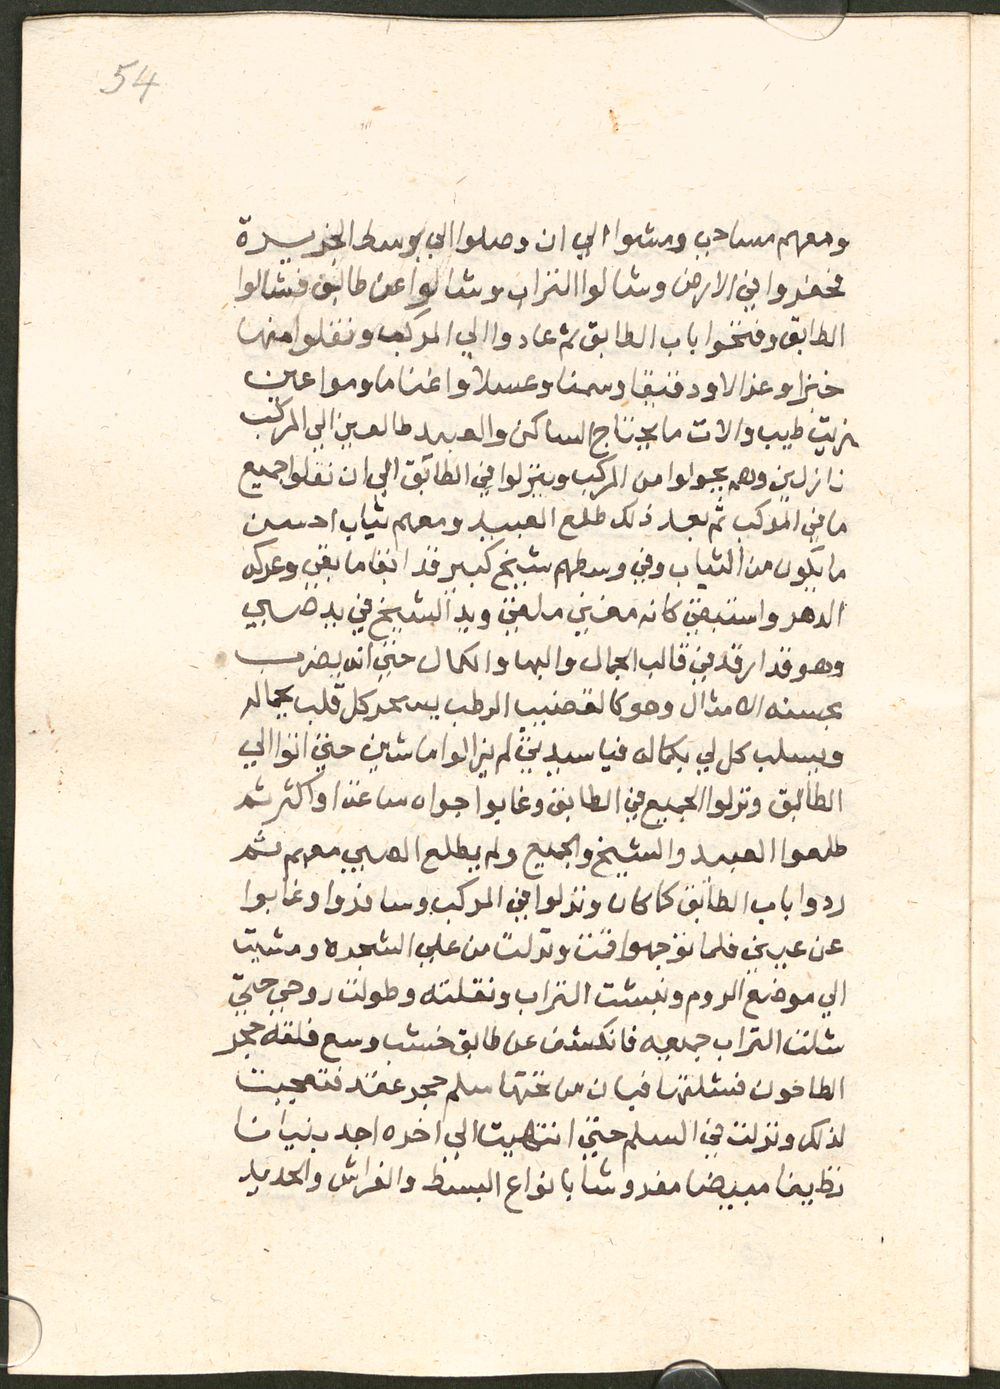 54
ومعهم مساحي ومشوا الي ان وصلوا الي وسط الجزيرة
فحفروا في الارض وشالوا التراب وشالوا عن طابق فشالوا
الطابق وفتحوا باب الطابق ثم عادوا الي المركب ونقلوا منها
خبزا وغزالا ودقيقا وسمنا وعسلا واغناما ومواعين
زيت طيب والات ما يحتاج الساكن والعبيد طالعين الي المركب
نازلين وهم يحولوا من المركب وينزلوا في الطابق الي ان نقلوا جميع
ما في المركب ثم بعد ذلك طلع العبيد ومعهم ثياب احسن
ما يكون من الثياب وفي وسطهم شيخ كبير قد ابقا ما بقي وعركه
الدهر واستبقي كانه مغني ملقي ويد الشيخ في يد صبي
وهو قد ارقد في قالب الجمال والبها والكمال حتي انه يضرب
بحسنه الامثال وهو كالقضيب الرطب يسحر كل قلب بجماله
ويسلب كل لب بكماله فيا سيدتي لم يزالوا ماشين حتي اتوا الي
الطابق ونزلوا الجميع في الطابق وغابوا جواه ساعتا واكثر ثم
طلعوا العبيد والشيخ والجميع ولم يطلع الصبي معهم ثم
ردوا باب الطابق كما كان ونزلوا في المركب وسافروا وغابوا
عن عيني فلما توجهوا قمت ونزلت من علي الشجره ومشيت
الي موضع الردم ونبشت التراب ونقلته وطولت روحي حتي
شلت التراب جميعه فانكشف عن طابق خشب وسع فلقة حجر
الطاحون فشلتها فبان من تحتها سلم حجر عقد فتعجبت
لذلك ونزلت في السلم حتي انتهيت الي اخره اجد بنيانا
نظيفا مبيضا مفروشا بانواع البسط والفراش والحديد